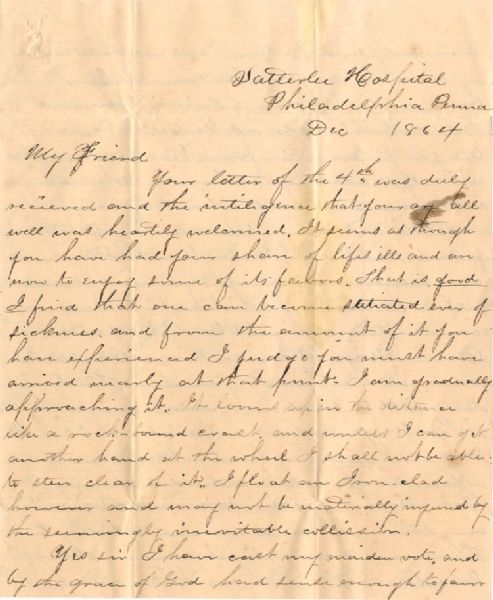 Satterlee Hospital
Philadelphia Penna
Dec 1864
My Friend
Your letter of the 4th was duly
recieved and the inteligence that your are all
well was heartily welcomed. It seems as though
you have had your share of lifes ills and are
now to enjoy some of its favors. That is good
I find that one can become satiated even of
sickness and from the amount of it you
have experienced I judge you must have
arived nearly at that point. I am gradually
approaching it. It looms up in the distance
like a rock-bound coast and unless I can get
another hand at the wheel I shall not be able
to steer clear of it, I float an Iron-clad
however and may not be materially injured by
the seemingly inevitable collission.
Yes sir I have cast my maiden vote, and
by the grace of God had sense enough to